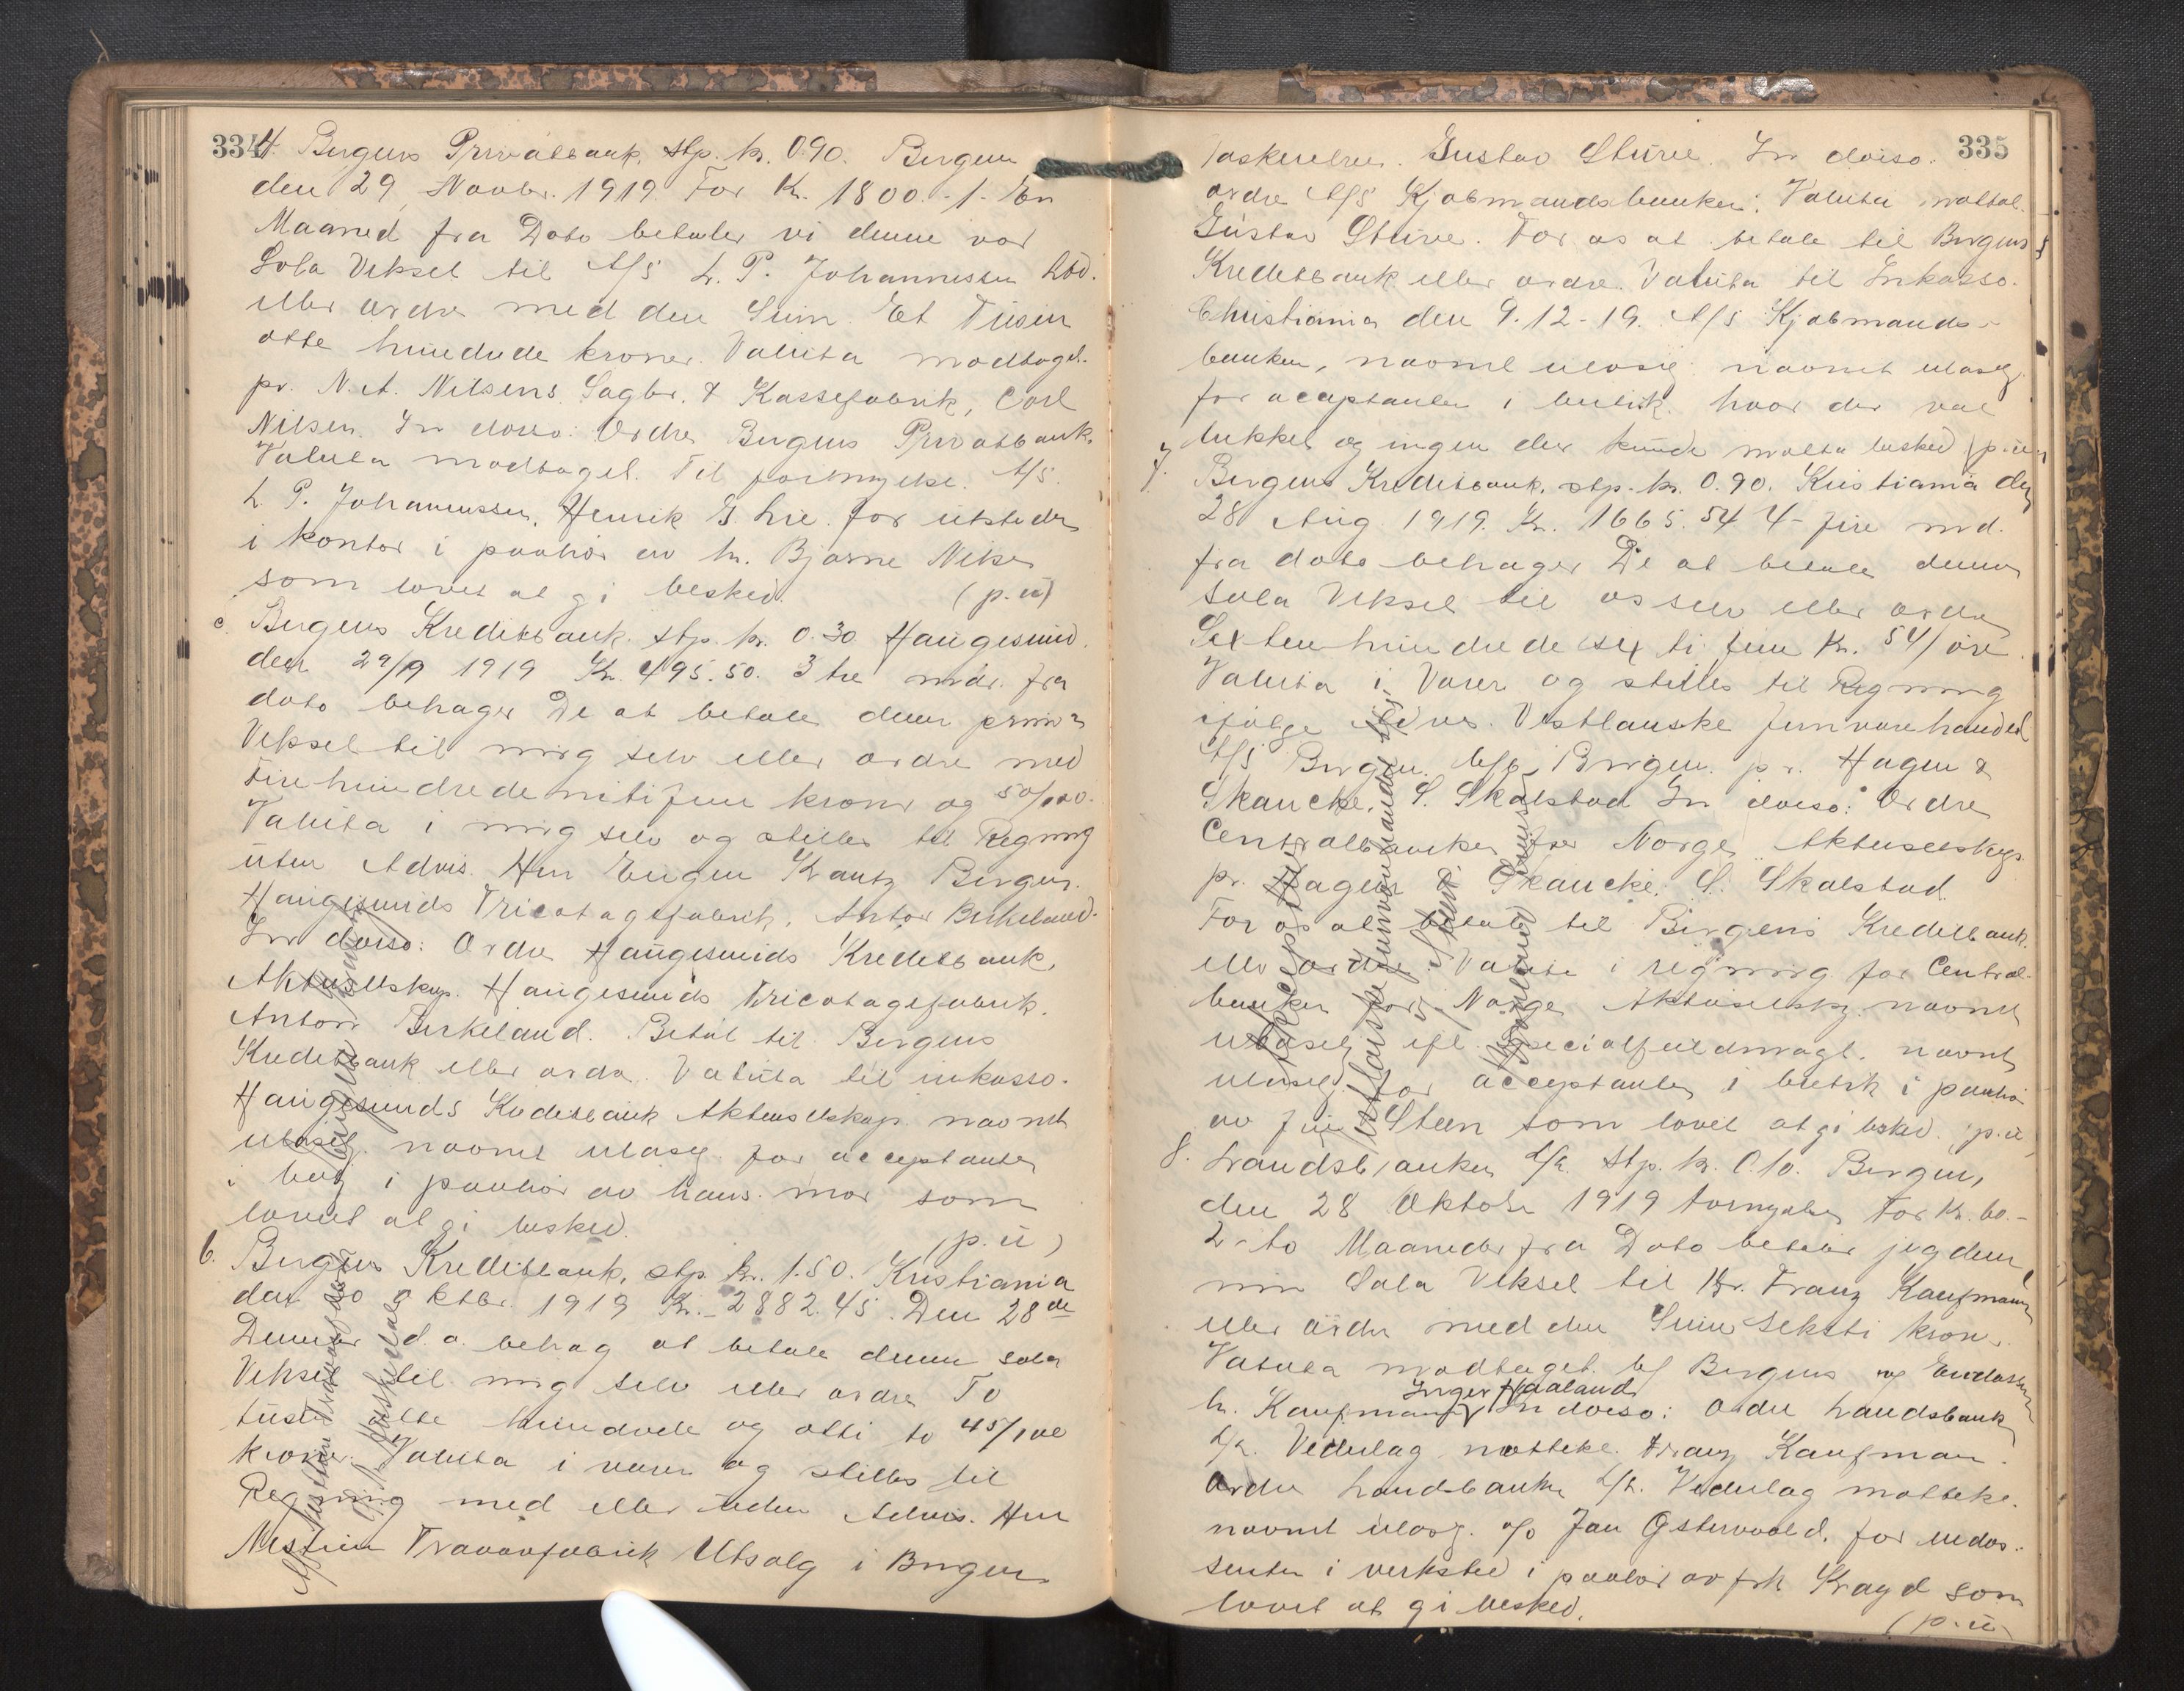 334
4. Bergens Privatbank, stp. kr. 0.90. Bergen
den 29 Novbr. 1919 For Kr. 1800.-/- En
Maaned fra Dato betaler vi denne vor
Sola Veksel til A/S L. P. Johannessen Ltd.
eller ordre med den Sum Et Tusen
otte hundrede kroner. Valuta modtaget.
pr. N. A. Nilsens Sagbr. & Kassefabrik, Carl
Nilsen. In dorso: Ordre Bergens Privatbank.
Valuta modtaget. Til fornyelse. A/S.
L. P. Johannessen, Henrik G. Lie. for utsteder
i kontor i paahör av hr. Bjarne Nilsen
som lovet at gi besked. (p.u)
Bergens Kreditbank. stp. kr. 0.30 Haugesund.
den 29/9 1919 Kr. 495.50. 3 tre mdr. fra
dato behager De at betale denne prima
Veksel til mig selv eller ordre med
Firehundrede nitifem kroner og 50/100.
Valuta i mig selv og stilles til Regning
uten Advis. Herr Eugen Krantz Bergen.
Haugesunds Tricotagefabrik. Anton Birkeland.
In dorso: Ordre Haugesunds Kreditbank,
Aktieselskap. Haugesunds Tricotagefabrik.
Anton Birkeland. Betal til Bergens
Kreditbank eller ordre. Valuta til inkasso.
Haugesunds Kreditbank Aktieselskap. navnet
ulæsel. navnet ulæsel. for acceptanten
i bolig i paahör av hans mor som
lovet at gi besked. (p.u)
6. Bergens Kreditbank, stp. kr. 1.50. Kristiania
den 30 oktbr. 1919 Kr. 2882.45. Den 28de
Decembr d.a. behag at betale denne sola
Veksel til mig selv eller ordre To
tusen otte hundrede og otti to 45/100
kroner. Valuta i varer og stilles til
Regning med eller uden Advis. Herr
Nestun Travarefabrik Utsalg i Bergen
335
Gustav Sturve. In dorso.
ordre A/S Kjøbmandsbanken. Valuta motat.
Gustav Sturve. For os at betale til Bergens
Kreditbank eller ordre. Valuta til Inkasso.
Christiania den 9.12-19. A/S Kjøbmands-
banken, navnet ulæselig navnet ulæselig
for acceptanten i butik hvor der var
lukket og ingen der kunde motta besked (p.u)
7. Bergens Kreditbank. stp. kr. 0.90. Kristiania den
28 Aug. 1919. Kr. 1665.54 4- fire md.
fra dato behager De at betale denne
Sola Veksel til os selv eller ordre
Sextenhundrede sex ti fem Kr. 54/ öre.
Valuta i Varer og stilles til Regning
ifølge Advis. Vestlanske Jernvarehandel
A/S Bergen. pr. Hagen &
Skancke. S. Skalstad In dorso: Ordre
Centralbanken for Norge, Aktieselskap.
pr. Hagen & Skancke. S. Skalstad.
For os at betale til Bergens Kreditbank.
eller ordre. Valuta i regning for Central-
banken for Norge Aktieselskap. navnet
ulæselig ifl. specialfuldmagt. navnet
ulæselig for acceptanten i butik i paahör
av frk. Steen som lovet at gi besked. (p.u)
8. Landsbanken A/S. stp. kr. 0.10. Bergen,
den 28 Oktober 1919 fornyelse For Kr. 60.-
2- to Maaneder fra Dato betaler jeg denne
min Sola Veksel til Hr. Franz Kaufmann
eller ordre med den Sum seksti kroner.
Valuta modtaget.
Inger Haaland
hr. Kaufmann In dorso: Ordre Landsbanken
A/S. Vederlag motteke. Franz Kaufman.
Ordre Landsbanken A/S. Vederlag motteke.
navnet ulæsg. o/o Jan Østervold. for endos-
senten i verksted i paahör av frk Kragd som
lovet at gi besked. (p.u)